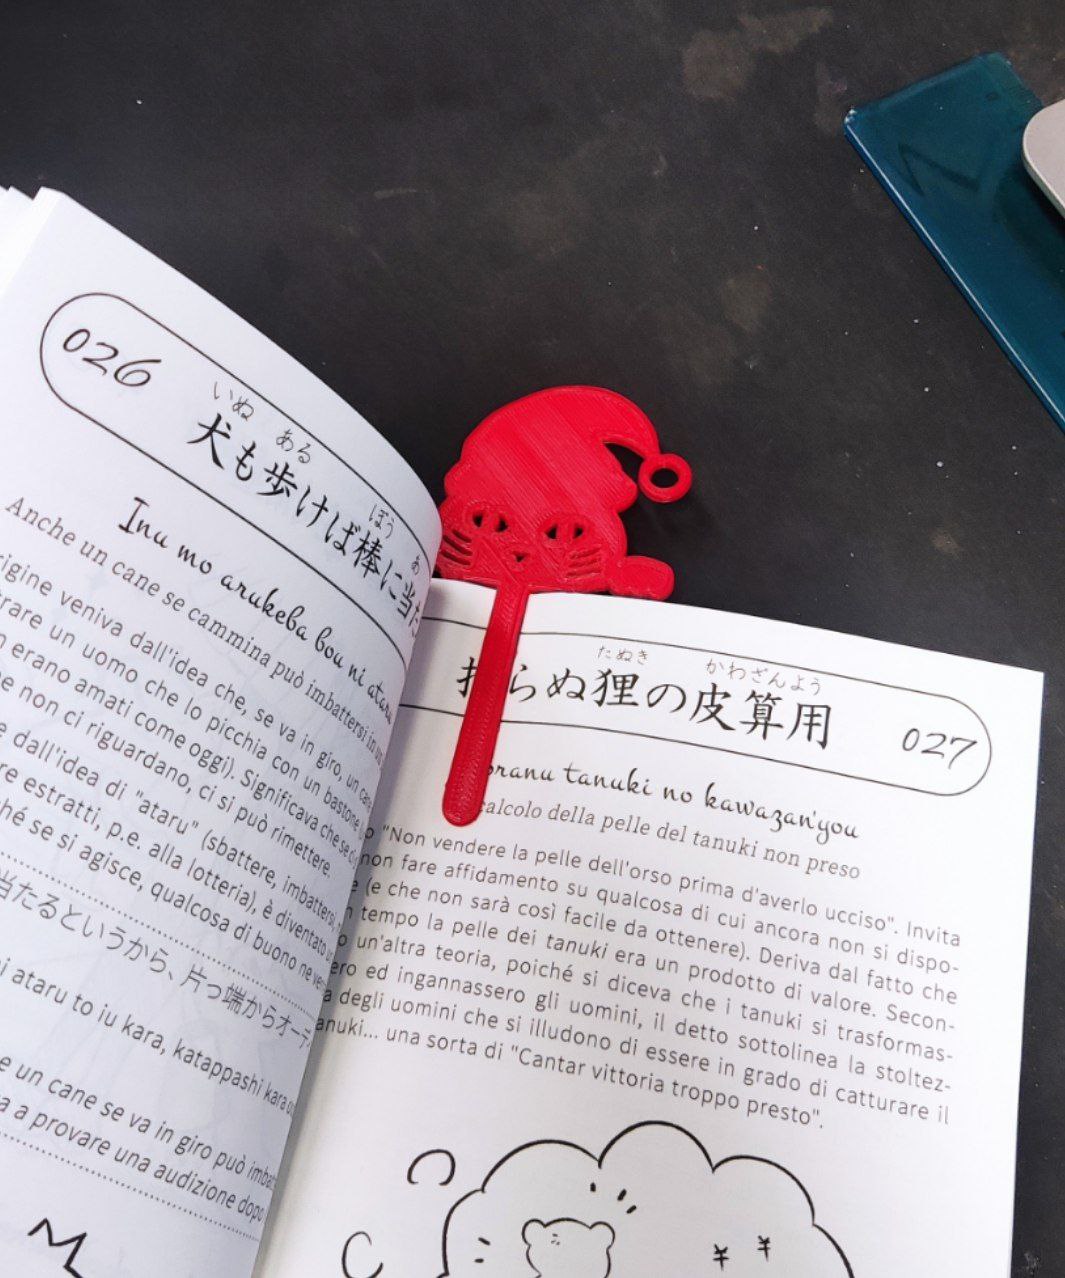 026
いぬ ある ぼう あ
犬も歩けば棒に当た
Inu mo arukeba bou ni ataru
Anche un cane se cammina può imbattersi in un
origine veniva dall'idea che, se va in giro, un cane
trare un uomo che lo picchia con un bastone
n erano amati come oggi). Significava che se ci
e non ci riguardano, ci si può rimettere.
e dall'idea di "ataru" (sbattere, imbattersi,
re estratti, p.e. alla lotteria), è diventato
hé se si agisce, qualcosa di buono ne
当たるというから、片っ端からオーデ
i ataru to iu kara, katappashi kara
e un cane se va in giro può
a a provare una audizione dopo
たぬき かわざんよう
らぬ狸の皮算用
027
oranu tanuki no kawazan'you
calcolo della pelle del tanuki non preso
o "Non vendere la pelle dell'orso prima d'averlo ucciso". Invita
non fare affidamento su qualcosa di cui ancora non si dispo-
e (e che non sarà così facile da ottenere). Deriva dal fatto che
tempo la pelle dei tanuki era un prodotto di valore. Secon-
o un'altra teoria, poiché si diceva che i tanuki si trasformas-
ero ed ingannassero gli uomini, il detto sottolinea la stoltez-
a degli uomini che si illudono di essere in grado di catturare il
anuki... una sorta di "Cantar vittoria troppo presto".
¥ ¥